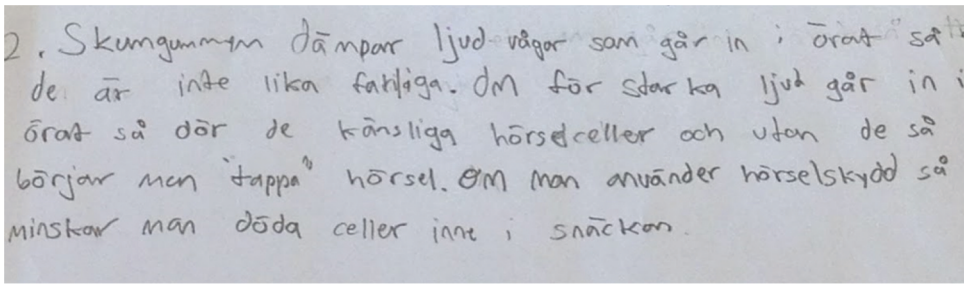 2. Skumgummin dämpar ljud vågor som går in i örat så
de är inte lika farliga. Om för starka ljud går in i
örat så dör de känsliga hörselceller och utan de så
börjar man "tappa" hörsel. Om man använder hörselskydd så
minskar man döda celler inne i snäckan.